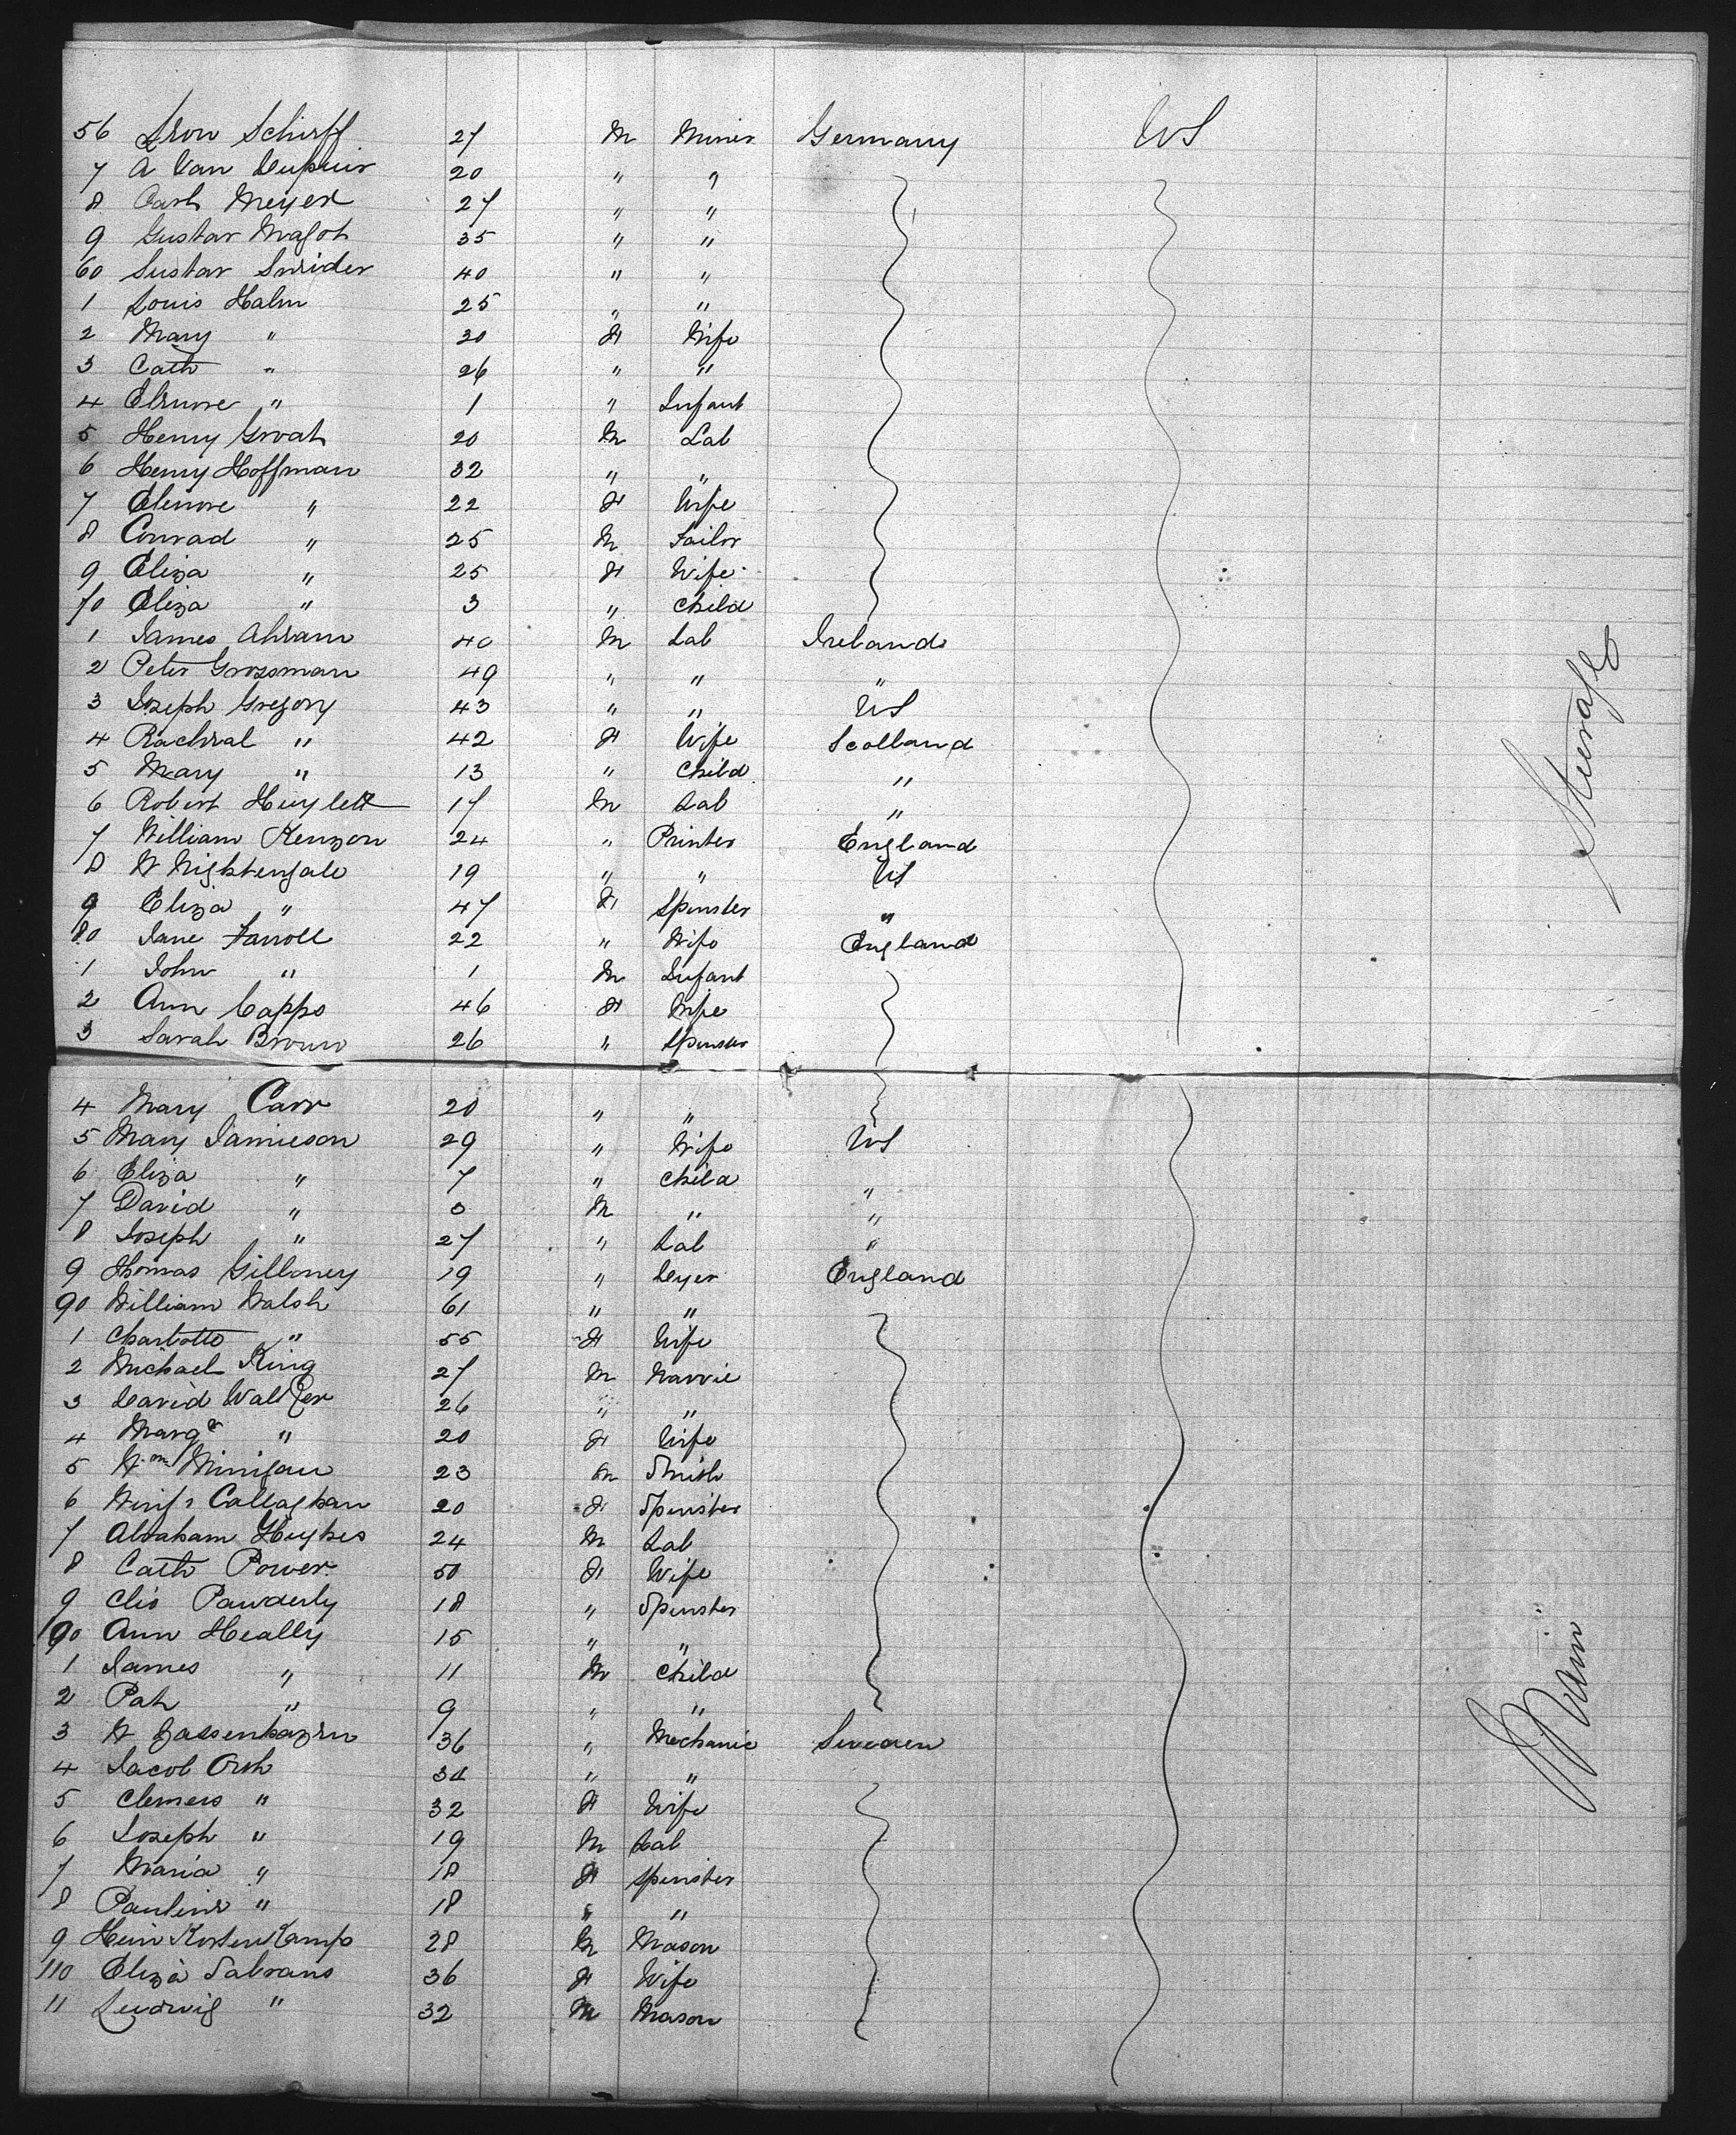 56 Leon Schirff 27 M Miner Germany US
7 A Van Dupuir 20 " "
8 Carl Meyer 27 " "
9 Gustav Magot 35 " "
60 Gustav Snrider 40 " "
1 Louis Halm 25 " "
2 Mary " 30 F Wife
3 Cath " 26 " "
4 Elenore " 1 " Infant
5 Henry Groat 20 M Lab
6 Henry Hoffman 32 " "
7 Elenore " 22 F Wife
8 Conrad " 25 M Tailor
9 Eliza " 25 F Wife
70 Eliza " 3 " Child
1 James Ahram 40 M Lab Ireland
2 Peter Grossman 49 " " "
3 Joseph Gregory 43 " " US
4 Rachral " 42 F Wife Scotland
5 Mary " 13 " Child "
6 Robert Huylett 17 M Lab "
7 William Kenzon 24 " Printer England
8 W Nightengale 19 " " US
9 Eliza " 47 F Spinster "
80 Jane Farroll 22 " Wife England
1 John " 1 M Infant
2 Ann Capps 46 F Wife
3 Sarah Brown 26 " Spinster
4 Mary Carr 20 " "
5 Mary Jamieson 29 " Wife US
6 Eliza " 7 " Child "
7 David " 3 M " "
8 Joseph " 27 " Lab "
9 Thomas Gilloney 19 " Dyer England
90 William Walsh 61 " "
1 Charlotte " 55 F Wife
2 Michael King 27 M Navvie
3 David Walker 26 " "
4 Margt " 20 F Wife
5 Wm Minigan 23 M Smith
6 Winifr Callaghan 20 F Spinster
7 Abraham Hughes 24 M Lab
8 Cath Power 50 F Wife
9 Clis Pawderly 18 " Spinster
100 Ann Heally 15 " "
1 James " 11 M Child
2 Pat " 9 " "
3 W 36 " Mechanic Sweden
4 Jacob Orth 34 " "
5 Clemers " 32 F Wife
6 Joseph " 19 M Lab
7 Maria " 18 F Spinster
8 Pauline " 18 " "
9 Hein Kosten Kamp 28 M Mason
110 Eliza Salrans 36 F Wife
11 Ludwig " 32 M Mason
Steerage
Main